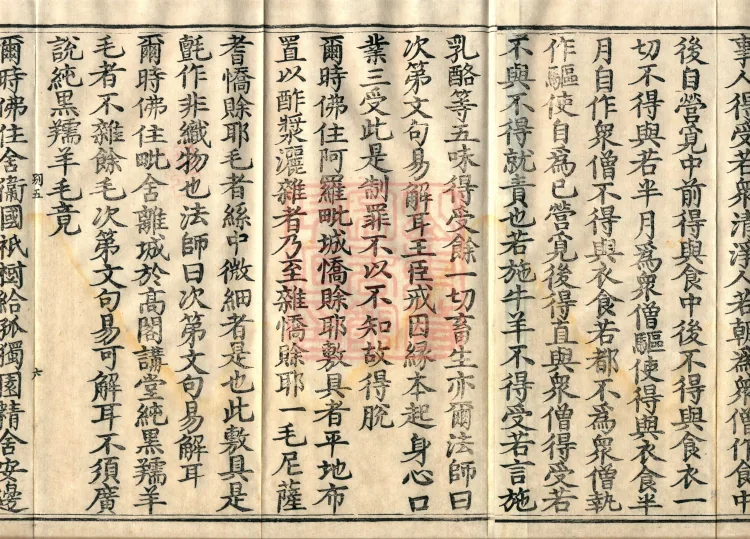 事人得受若衆清淨人若朝爲衆僧作食中
後自營覓中前得與食中後不得與食衣一
切不得與若半月爲衆僧驅使得與衣食半
月自作衆僧不得與衣食若都不爲衆僧執
作驅使自爲已營覓後得直與衆僧得受若
不與不得就責也若施牛羊不得受若言施
乳酪等五味得受餘一切畜生亦爾法師曰
次第文句易解耳王臣戒因緣本起身心口
業三受此是制罪不以不知故得脫
爾時佛住阿羅毗城憍賒耶敷具者平地布
置以酢漿灑雜者乃至雜憍賒耶一毛尼薩
耆憍賒耶毛者絲中微細者是也此敷具是
氈作非織物也法師曰次第文句易解耳
爾時佛住毗舍離城於高閣講堂純黑羺羊
毛者不雜餘毛次第文句易可解耳不須廣
說純黑羺羊毛竟
六
爾時佛住舍衞國祇樹給孤獨園精舍安邊